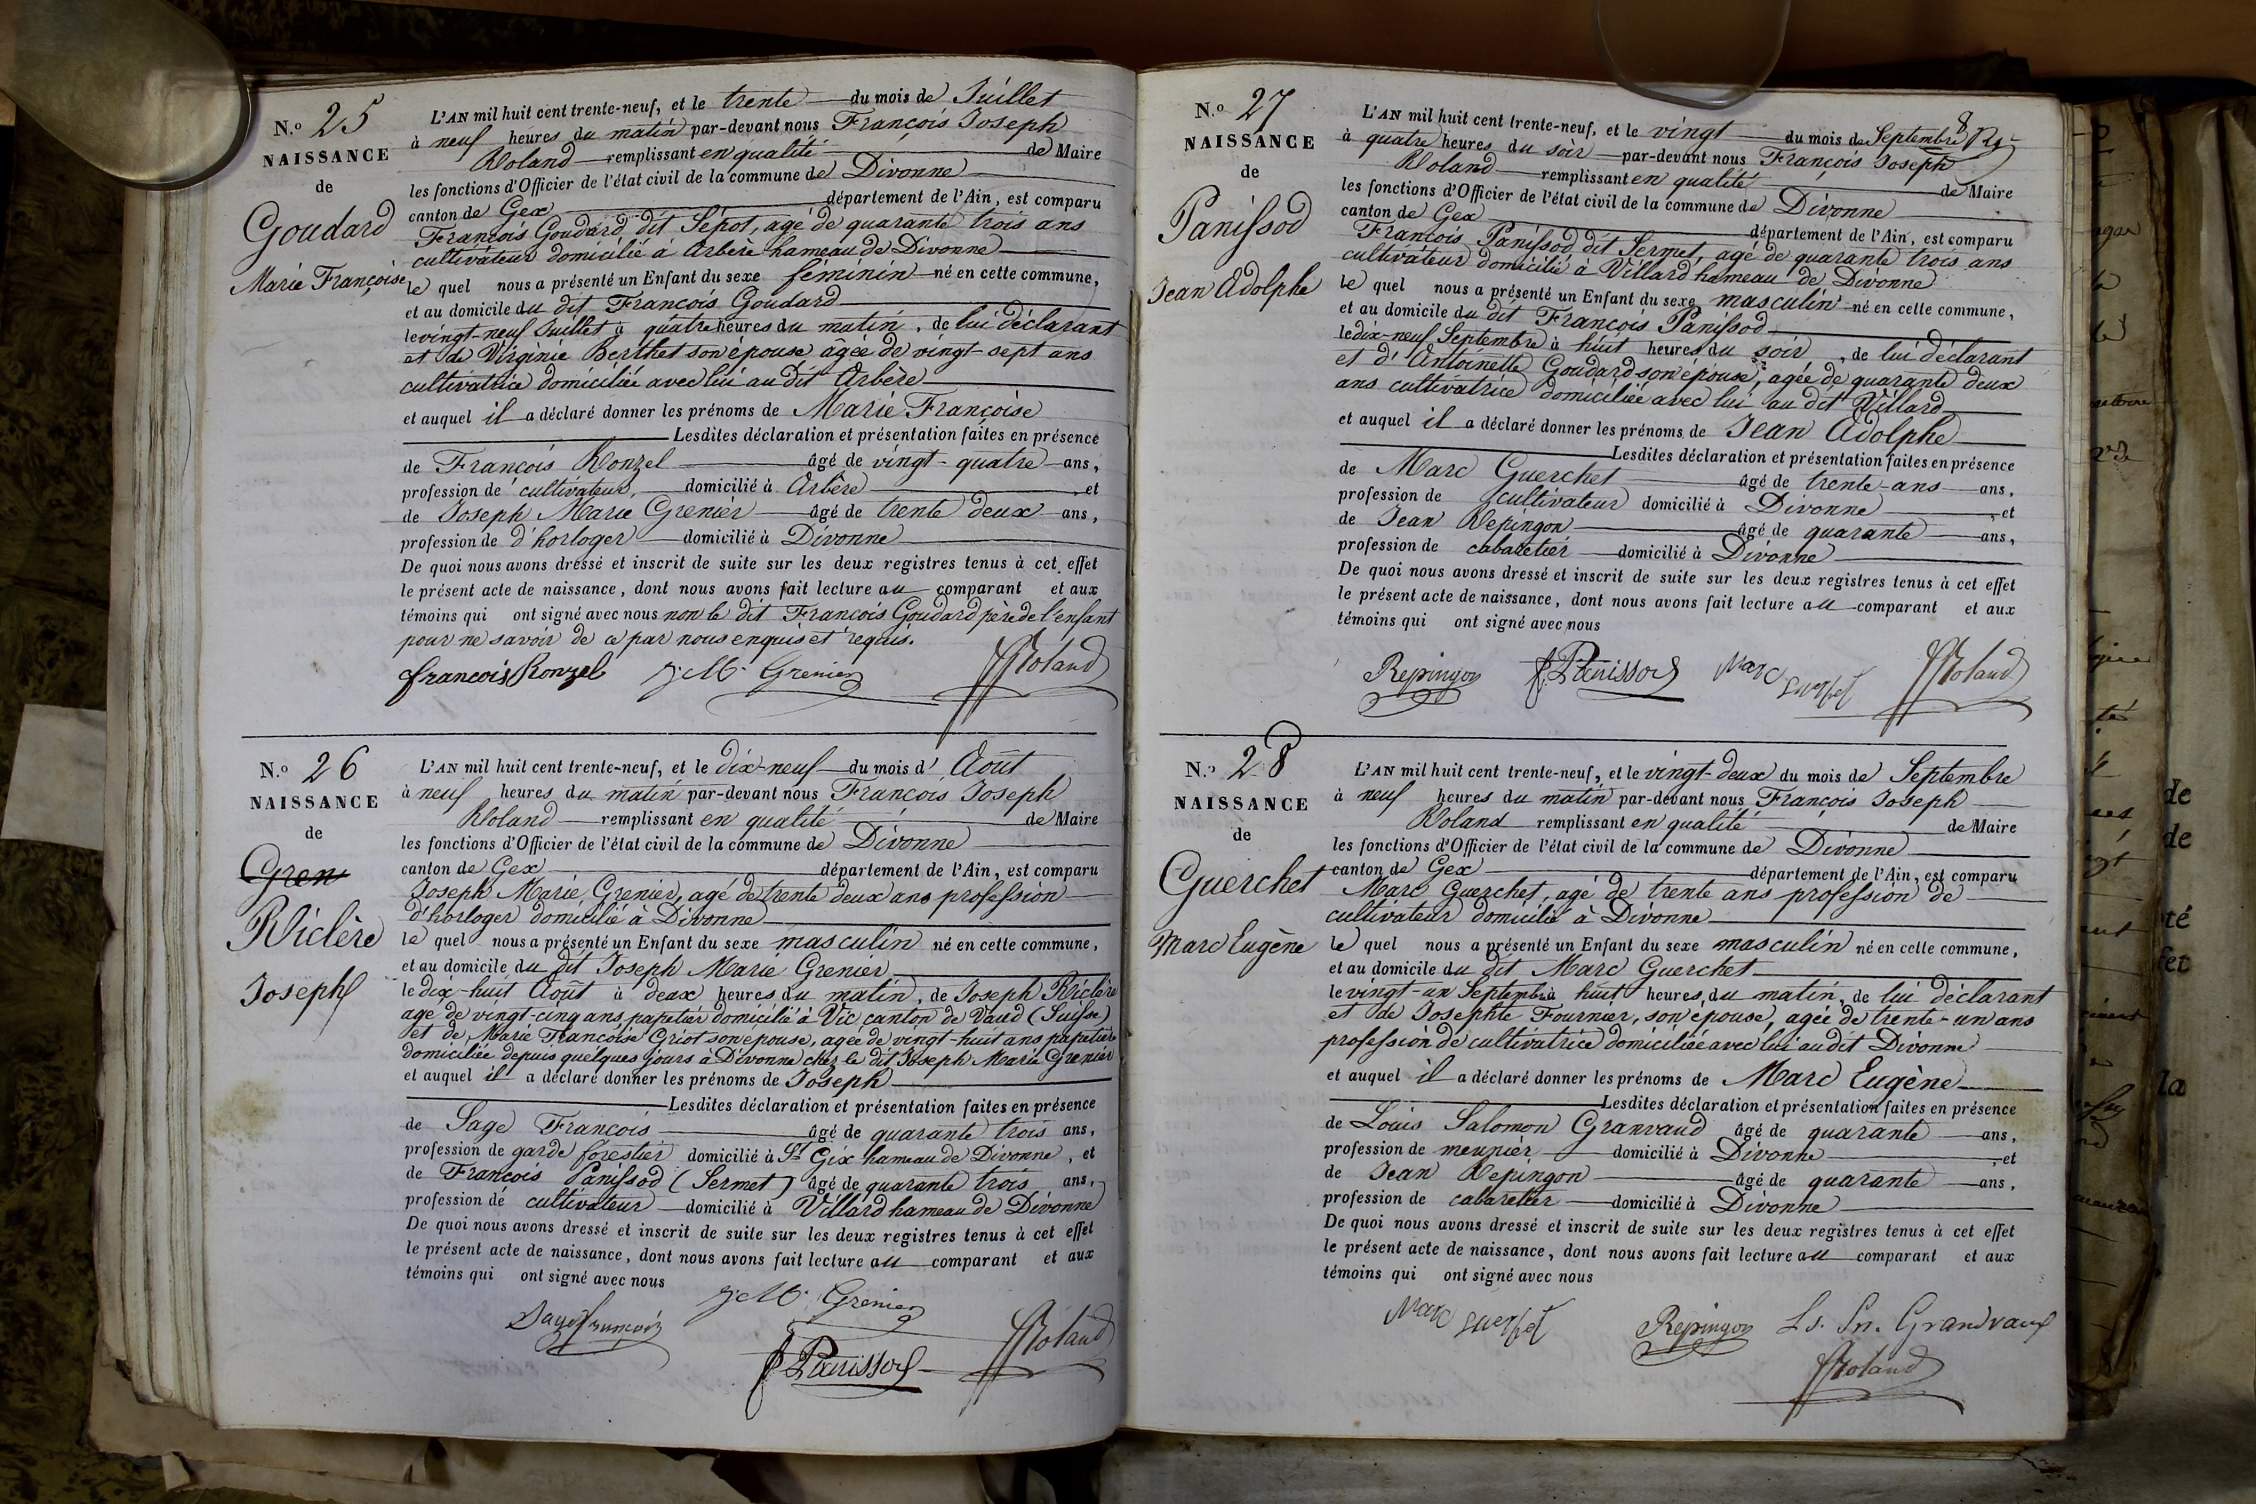 N.º 25
NAISSANCE
de
Goudard
Marie Françoise
L'AN mil huit cent trente-neuf, et le trente du mois de Juillet
à neuf heures du matin par-devant nous François Joseph
Roland remplissant en qualité de Maire
les fonctions d'Officier de l'état civil de la commune de Divonne
canton de Gex département de l'Ain, est comparu
François Goudard dit Sépot, agé de quarante trois ans
cultivateur domicilié à Arbère hameau de Divonne
le quel nous a présenté un Enfant du sexe féminin né en cette commune,
et au domicile du dit François Goudard
le vingt-neuf Juillet à quatre heures du matin, de lui déclarant
et de Virginie Berthet son épouse âgée de vingt-sept ans
cultivatrice domiciliée avec lui au dit Arbère
et auquel il a déclaré donner les prénoms de Marie Françoise
Lesdites déclaration et présentation faites en présence
de François Ronzel âgé de vingt-quatre ans,
profession de cultivateur, domicilié à Arbère, et
de Joseph Marie Grenier âgé de trente deux ans,
profession de d'horloger domicilié à Divonne
De quoi nous avons dressé et inscrit de suite sur les deux registres tenus à cet effet
le présent acte de naissance, dont nous avons fait lecture au comparant et aux
témoins qui ont signé avec nous non le dit François Goudard père de l'enfant
pour ne savoir de ce par nous enquis et requis.
françois Ronzel J. M. Grenier Roland
N.º 26
NAISSANCE
de
Gren
Riclère
Joseph
L'AN mil huit cent trente-neuf, et le dix-neuf du mois d' Août
à neuf heures du matin par-devant nous François Joseph
Roland remplissant en qualité de Maire
les fonctions d'Officier de l'état civil de la commune de Divonne
canton de Gex département de l'Ain, est comparu
Joseph Marie Grenier, agé de trente deux ans profession
d'horloger domicilié à Divonne
le quel nous a présenté un Enfant du sexe masculin né en cette commune,
et au domicile du dit Joseph Marie Grenier
le dix-huit Août à deux heures du matin, de Joseph Riclère
agé de vingt-cinq ans papetier domicilié à Vic canton de Vaud (Suisse)
et de Marie Françoise Griot son épouse, agée de vingt-huit ans papetière
domiciliée depuis quelques jours à Divonne chez le dit Joseph Marie Grenier
et auquel il a déclaré donner les prénoms de Joseph
Lesdites déclaration et présentation faites en présence
de Sage François âgé de quarante trois ans,
profession de garde forestier domicilié à St Gix hameau de Divonne, et
de François Panissod (Sermet) âgé de quarante trois ans,
profession de cultivateur domicilié à Villard hameau de Divonne
De quoi nous avons dressé et inscrit de suite sur les deux registres tenus à cet effet
le présent acte de naissance, dont nous avons fait lecture au comparant et aux
témoins qui ont signé avec nous
J. M. Grenier
Sage françois Roland
f. Panissod
N.º 27
NAISSANCE
de
Panissod
Jean Adolphe
L'AN mil huit cent trente-neuf, et le vingt du mois de Septembre
à quatre heures du soir par-devant nous François Joseph
Roland remplissant en qualité de Maire
les fonctions d'Officier de l'état civil de la commune de Divonne
canton de Gex département de l'Ain, est comparu
François Panissod dit Sermet, agé de quarante trois ans
cultivateur domicilié à Villard hameau de Divonne
le quel nous a présenté un Enfant du sexe masculin né en cette commune,
et au domicile du dit François Panissod
le dix-neuf Septembre à huit heures du soir, de lui déclarant
et d'Antoinette Goudard son épouse, agée de quarante deux
ans cultivatrice domiciliée avec lui au dit Villard
et auquel il a déclaré donner les prénoms de Jean Adolphe
Lesdites déclaration et présentation faites en présence
de Marc Guerchet âgé de trente-ans ans,
profession de cultivateur domicilié à Divonne, et
de Jean Repingon âgé de quarante ans,
profession de cabaretier domicilié à Divonne
De quoi nous avons dressé et inscrit de suite sur les deux registres tenus à cet effet
le présent acte de naissance, dont nous avons fait lecture au comparant et aux
témoins qui ont signé avec nous
Repingon f. Panissod Marc Guerchet Roland
N.º 28
NAISSANCE
de
Guerchet
Marc Eugène
L'AN mil huit cent trente-neuf, et le vingt-deux du mois de Septembre
à neuf heures du matin par-devant nous François Joseph
Roland remplissant en qualité de Maire
les fonctions d'Officier de l'état civil de la commune de Divonne
canton de Gex département de l'Ain, est comparu
Marc Guerchet, agé de trente ans profession de
cultivateur domicilié à Divonne
le quel nous a présenté un Enfant du sexe masculin né en cette commune,
et au domicile du dit Marc Guerchet
le vingt-un Septembre à huit heures du matin, de lui déclarant
et de Josephte Fournier, son épouse, agée de trente-un ans
profession de cultivatrice domiciliée avec lui au dit Divonne
et auquel il a déclaré donner les prénoms de Marc Eugène
Lesdites déclaration et présentation faites en présence
de Louis Salomon Granvaud âgé de quarante ans,
profession de meunier domicilié à Divonne, et
de Jean Repingon âgé de quarante ans,
profession de cabaretier domicilié à Divonne
De quoi nous avons dressé et inscrit de suite sur les deux registres tenus à cet effet
le présent acte de naissance, dont nous avons fait lecture au comparant et aux
témoins qui ont signé avec nous
Marc Guerchet Repingon Ls. Sn. Grandvaux
Roland